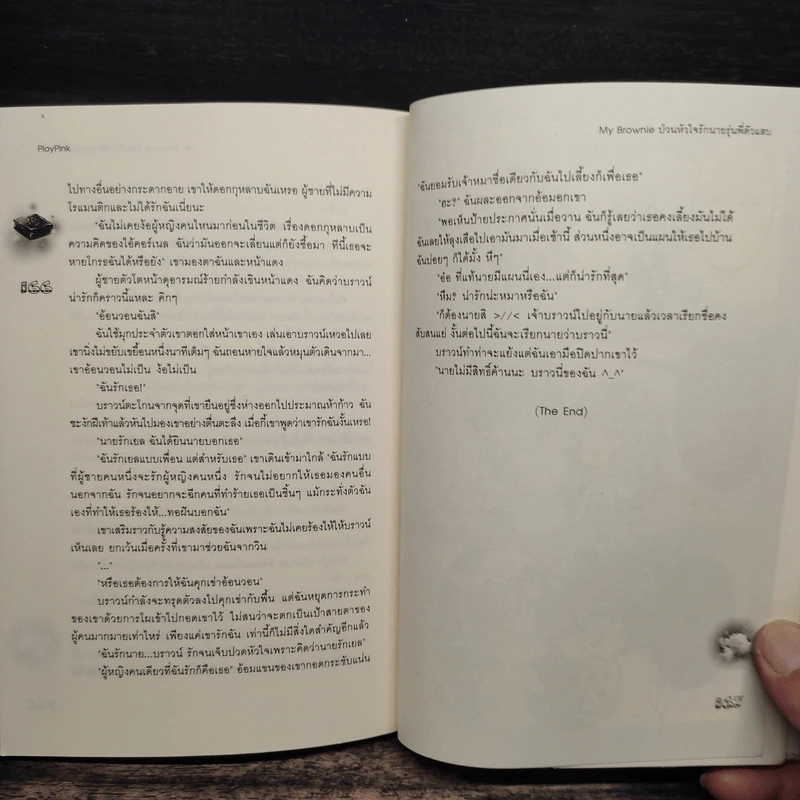 PloyPink
ไปทางอื่นอย่างกระดากอาย เขาให้ดอกกุหลาบฉันเหรอ ผู้ชายที่ไม่มีความ
โรแมนติกและไม่ได้รักฉันเนี่ยนะ
"ฉันไม่เคยง้อผู้หญิงคนไหนมาก่อนในชีวิต เรื่องดอกกุหลาบเป็น
ความคิดของไอ้คอร์เนล ฉันว่ามันออกจะเลี่ยนแต่ก็ยังซื้อมา ทีนี้เธอจะ
หายโกรธฉันได้หรือยัง" เขามองตาฉันและหน้าแดง
ผู้ชายตัวโตหน้าดุอารมณ์ร้ายกำลังเขินหน้าแดง ฉันคิดว่าบราวน์
น่ารักก็คราวนี้แหละ คิกๆ
166
"อ้อนวอนฉันสิ"
ฉันใช้มุกประจำตัวเขาตอกใส่หน้าเขาเอง เล่นเอาบราวน์เหวอไปเลย
เขานิ่งไม่ขยับเขยื้อนหนึ่งนาทีเต็มๆ ฉันถอนหายใจแล้วหมุนตัวเดินจากมา...
เขาอ้อนวอนไม่เป็น ง้อไม่เป็น
"ฉันรักเธอ!"
บราวน์ตะโกนจากจุดที่เขายืนอยู่ซึ่งห่างออกไปประมาณห้าก้าว ฉัน
ชะงักฝีเท้าแล้วหันไปมองเขาอย่างตื่นตะลึง เมื่อกี้เขาพูดว่าเขารักฉันงั้นเหรอ!
"นายรักเยล ฉันได้ยินนายบอกเธอ"
"ฉันรักเยลแบบเพื่อน แต่สำหรับเธอ" เขาเดินเข้ามาใกล้ "ฉันรักแบบ
ที่ผู้ชายคนหนึ่งจะรักผู้หญิงคนหนึ่ง รักจนไม่อยากให้เธอมองคนอื่น
นอกจากฉัน รักจนอยากจะฉีกคนที่ทำร้ายเธอเป็นชิ้นๆ แม้กระทั่งตัวฉัน
เองที่ทำให้เธอร้องไห้...ทอฝันบอกฉัน"
เขาเสริมราวกับรู้ความสงสัยของฉันเพราะฉันไม่เคยร้องไห้ให้บราวน์
เห็นเลย ยกเว้นเมื่อครั้งที่เขามาช่วยฉันจากวิน
"..."
"หรือเธอต้องการให้ฉันคุกเข่าอ้อนวอน"
บราวน์กำลังจะทรุดตัวลงไปคุกเข่ากับพื้น แต่ฉันหยุดการกระทำ
ของเขาด้วยการโผเข้าไปกอดเขาไว้ ไม่สนว่าจะตกเป็นเป้าสายตาของ
ผู้คนมากมายเท่าไหร่ เพียงแค่เขารักฉัน เท่านี้ก็ไม่มีสิ่งใดสำคัญอีกแล้ว
"ฉันรักนาย...บราวน์ รักจนเจ็บปวดหัวใจเพราะคิดว่านายรักเยล"
"ผู้หญิงคนเดียวที่ฉันรักก็คือเธอ" อ้อมแขนของเขากอดกระชับแน่น
My Brownie ป่วนหัวใจรักนายรุ่นพี่ตัวแสบ
"ฉันยอมรับเจ้าหมาชื่อเดียวกับฉันไปเลี้ยงก็เพื่อเธอ"
"ฮะ?" ฉันผละออกจากอ้อมอกเขา
"พอเห็นป้ายประกาศนั่นเมื่อวาน ฉันก็รู้เลยว่าเธอคงเลี้ยงมันไม่ได้
ฉันเลยให้ลุงเสือไปเอามันมาเมื่อเช้านี้ ส่วนหนึ่งอาจเป็นแผนให้เธอไปบ้าน
ฉันบ่อยๆ ก็ได้มั้ง หึๆ"
"อ๋อ ที่แท้นายมีแผนนี่เอง...แต่ก็น่ารักที่สุด"
"หืม? น่ารักน่ะหมาหรือฉัน"
"ก็ต้องนายสิ >//< เจ้าบราวน์ไปอยู่กับนายแล้วเวลาเรียกชื่อคง
สับสนแย่ งั้นต่อไปนี้ฉันจะเรียกนายว่าบราวนี่"
บราวน์ทำท่าจะแย้งแต่ฉันเอามือปิดปากเขาไว้
"นายไม่มีสิทธิ์ค้านนะ บราวนี่ของฉัน ^_^"
(The End)